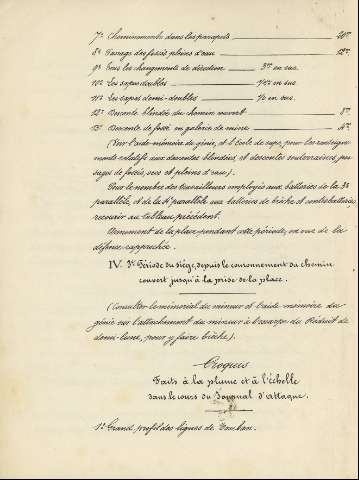 7° Cheminements dans les parapets — 20m.
8° Passage des fossés pleins d'eau — 12m.
9° Tous les changements de direction — 3m en sus.
10° Les sapes doubles — en sus
11° Les sapes demi-doubles — ½ en sus.
12° Descente blindée du chemin couvert — 8m.
13° Descente de fossé en galerie de mine — 4m.
(Voir l'aide-mémoire du génie, et l'École de sape, pour les renseigne-
ments relatifs aux descentes blindées, et descentes souterraines, pas-
sages de fossés, secs et pleins d'eau).
Pour le nombre des travailleurs employés aux batteries de la 3e
parallèle, et de la 4e parallèle aux batteries de brèche et contrebatteries,
recourir au tableau précédent.
Armement de la place pendant cette période, en vue de la
défense rapprochée.
IV. 3e Période du siège, depuis le couronnement du chemin
couvert jusqu'à la prise de la place.
(Consulter le mémorial du mineur et l'aide-mémoire du
génie sur l'attachement du mineur à l'escarpe du Réduit de
demi-lune, pour y faire brèche).
Croquis
Faits à la plume et à l'échelle
dans le cours du Journal d'attaque.
1° Grand profil des lignes de Vauban.